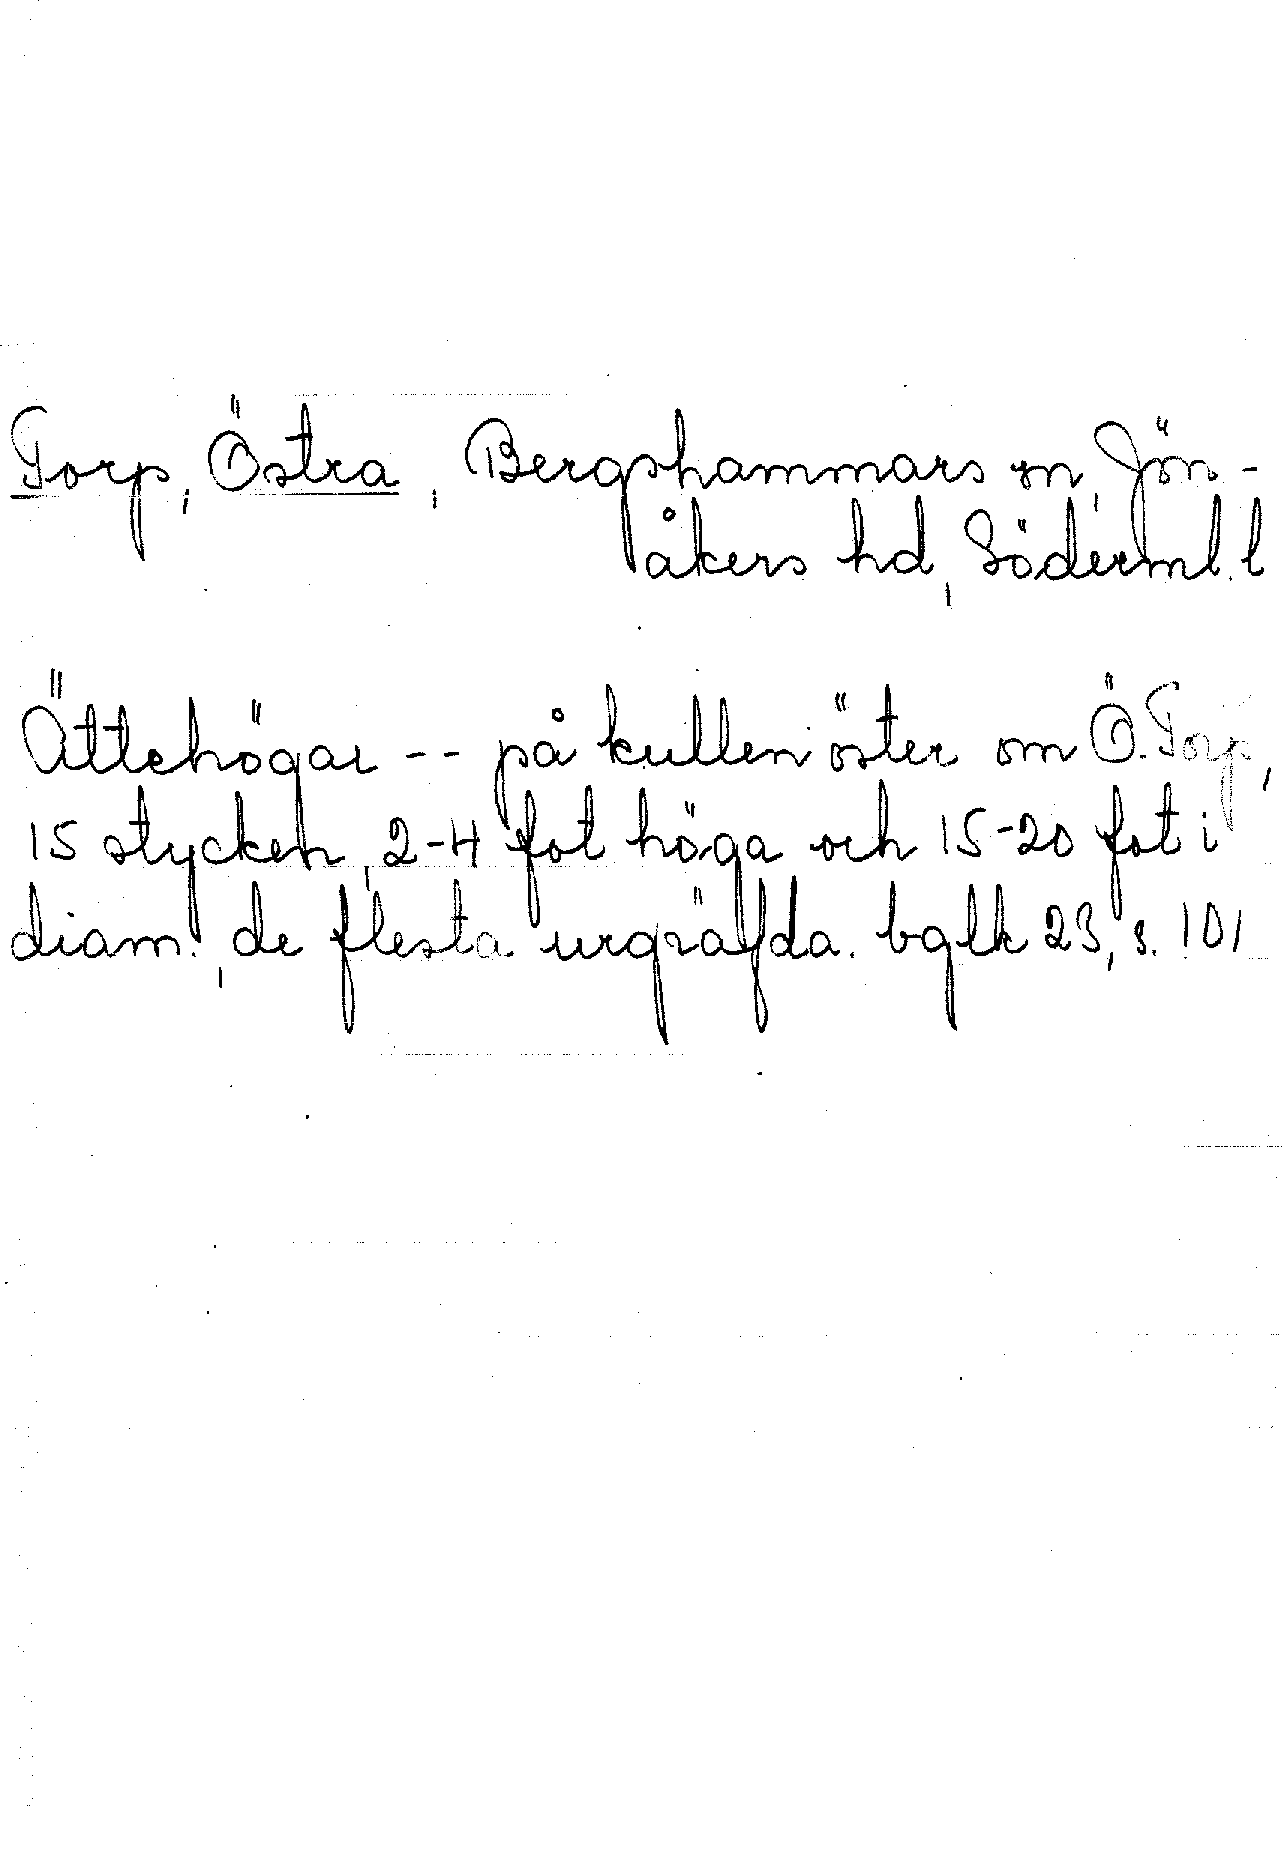 Torp, Östra, Bergshammars sn, Jön-
åkers hd, Söderml. l
Ättehögar -- på kullen öster om Ö. Torp,
15 stycken, 2-4 fot höga och 15-20 fot i
diam., de flesta urgräfda. bglk 23, s. 101